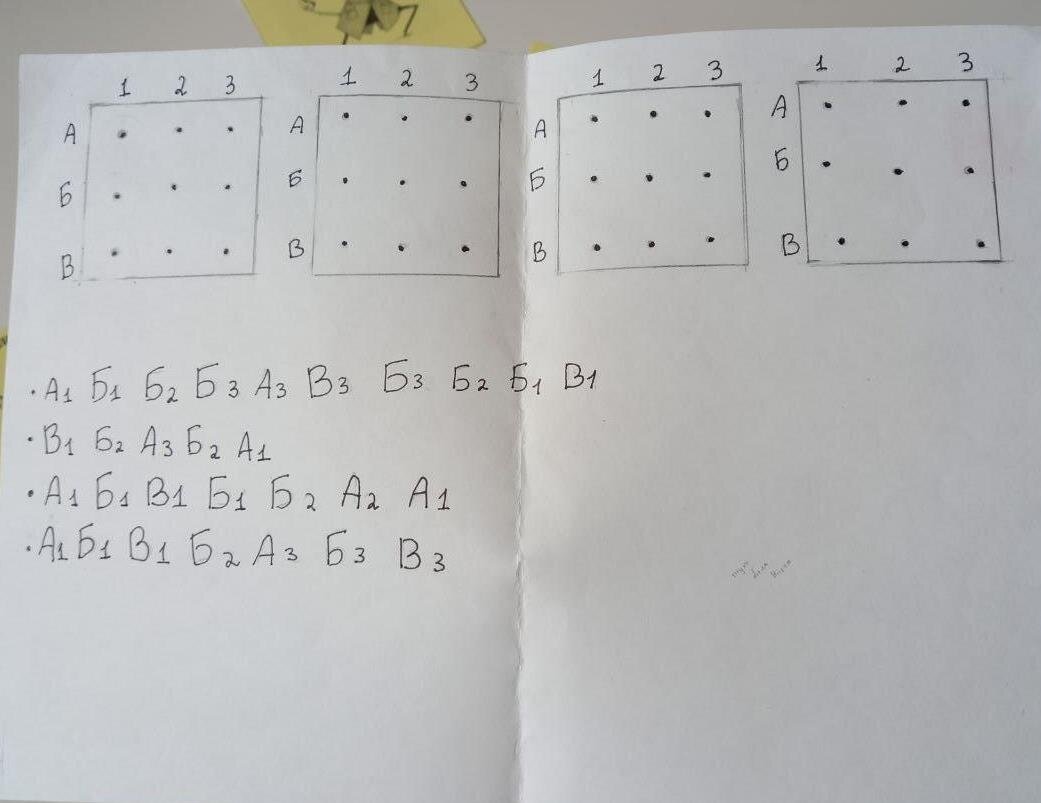 1 2 3 1 2 3 1 2 3 1 2 3
А А А А
Б Б Б Б
В В В В
· А1 Б1 Б2 Б3 А3 В3 Б3 Б2 Б1 В1
· В1 Б2 А3 Б2 А1
· А1 Б1 В1 Б1 Б2 А2 А1
· А1 Б1 В1 Б2 А3 Б3 В3